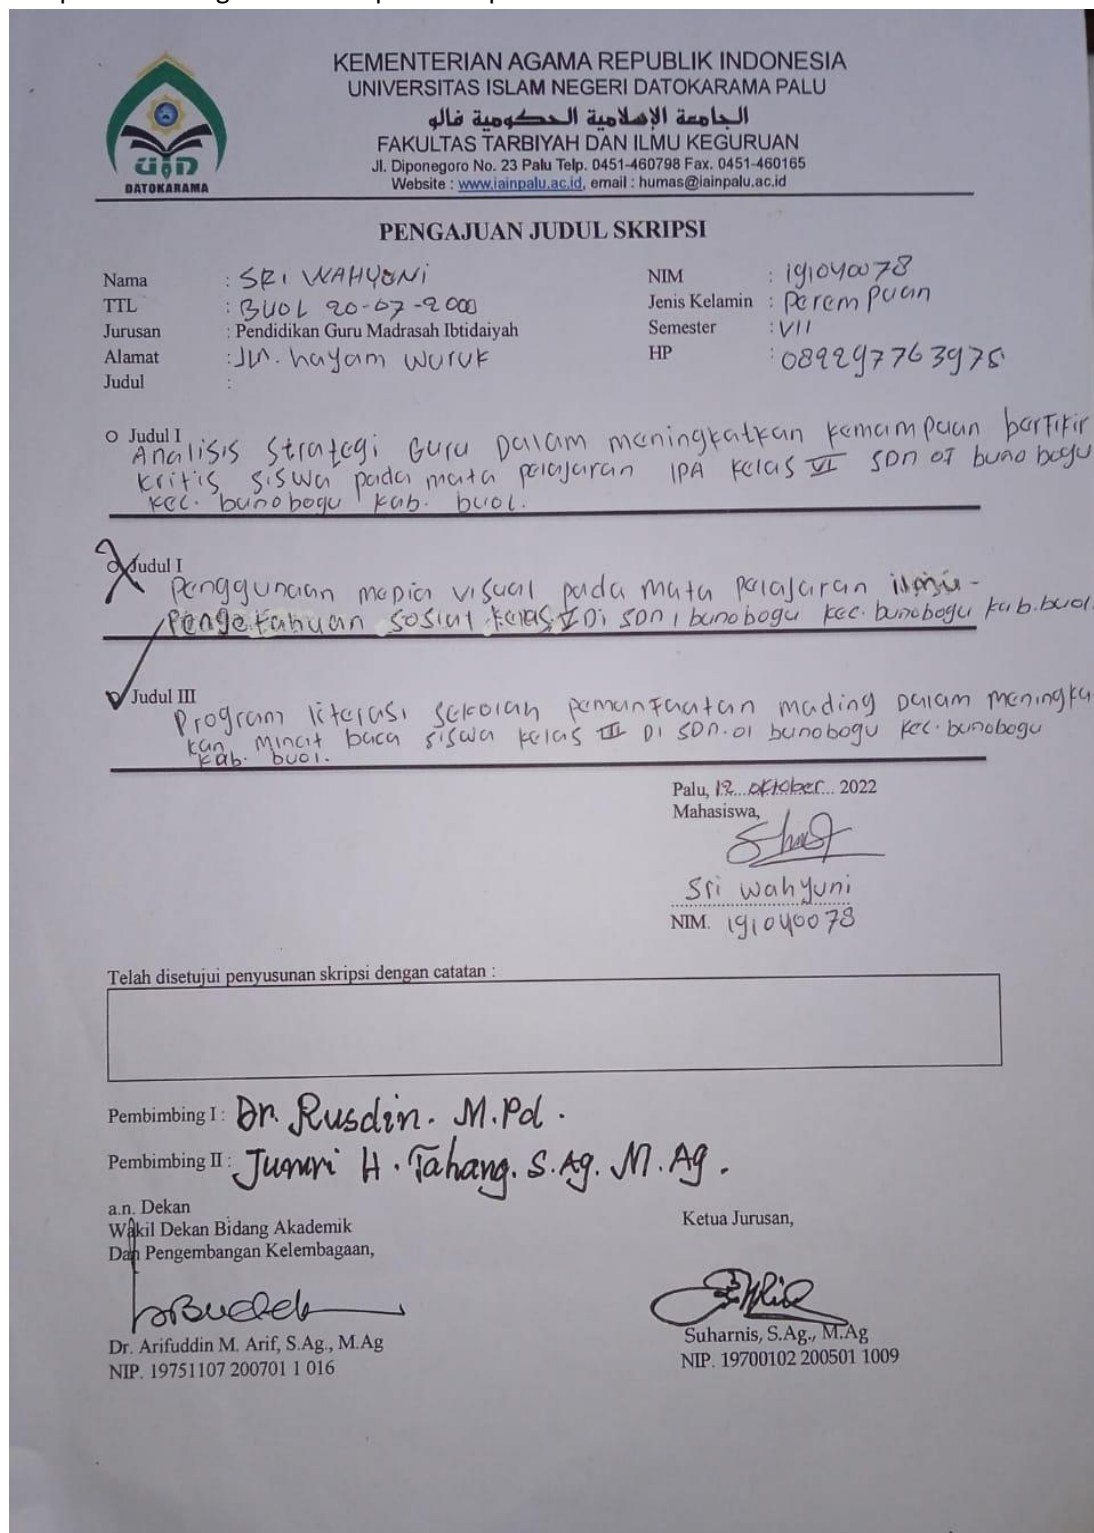 UIN
DATOKARAMA
KEMENTERIAN AGAMA REPUBLIK INDONESIA
UNIVERSITAS ISLAM NEGERI DATOKARAMA PALU
الجامعة الإسلامية الحكومية فالو
FAKULTAS TARBIYAH DAN ILMU KEGURUAN
Jl. Diponegoro No. 23 Palu Telp. 0451-460798 Fax. 0451-460165
Website : www.iainpalu.ac.id, email : humas@iainpalu.ac.id
PENGAJUAN JUDUL SKRIPSI
Nama : SRI WAHYUNI NIM : 191040078
TTL : BUOL 20-07-2000 Jenis Kelamin : perempuan
Jurusan : Pendidikan Guru Madrasah Ibtidaiyah Semester : VII
Alamat : Jln. hayam wuruk HP : 089297763975
Judul :
Judul I
Analisis Strategi Guru Dalam meningkatkan kemampuan berfikir
kritis siswa pada mata pelajaran IPA kelas VI SDN 01 bunobogu
kec. bunobogu kab. buol.
Judul I
Penggunaan media visual pada mata pelajaran ilmu-
Pengetahuan sosial kelas V Di SDN 1 bunobogu kec. bunobogu kab. buol.
Judul III
Program literasi sekolah pemanfaatan mading Dalam meningka
kan minat baca siswa kelas III DI SDN.01 bunobogu kec. bunobogu
kab. buol.
Palu, 12 oktober 2022
Mahasiswa,
Sri wahyuni
NIM. 191040078
Telah disetujui penyusunan skripsi dengan catatan :
Pembimbing I : Dr. Rusdin. M.Pd.
Pembimbing II : Jumri H. Tahang. S.Ag. M.Ag.
a.n. Dekan
Wakil Dekan Bidang Akademik Ketua Jurusan,
Dan Pengembangan Kelembagaan,
Dr. Arifuddin M. Arif, S.Ag., M.Ag Suharnis, S.Ag., M.Ag
NIP. 19751107 200701 1 016 NIP. 19700102 200501 1009